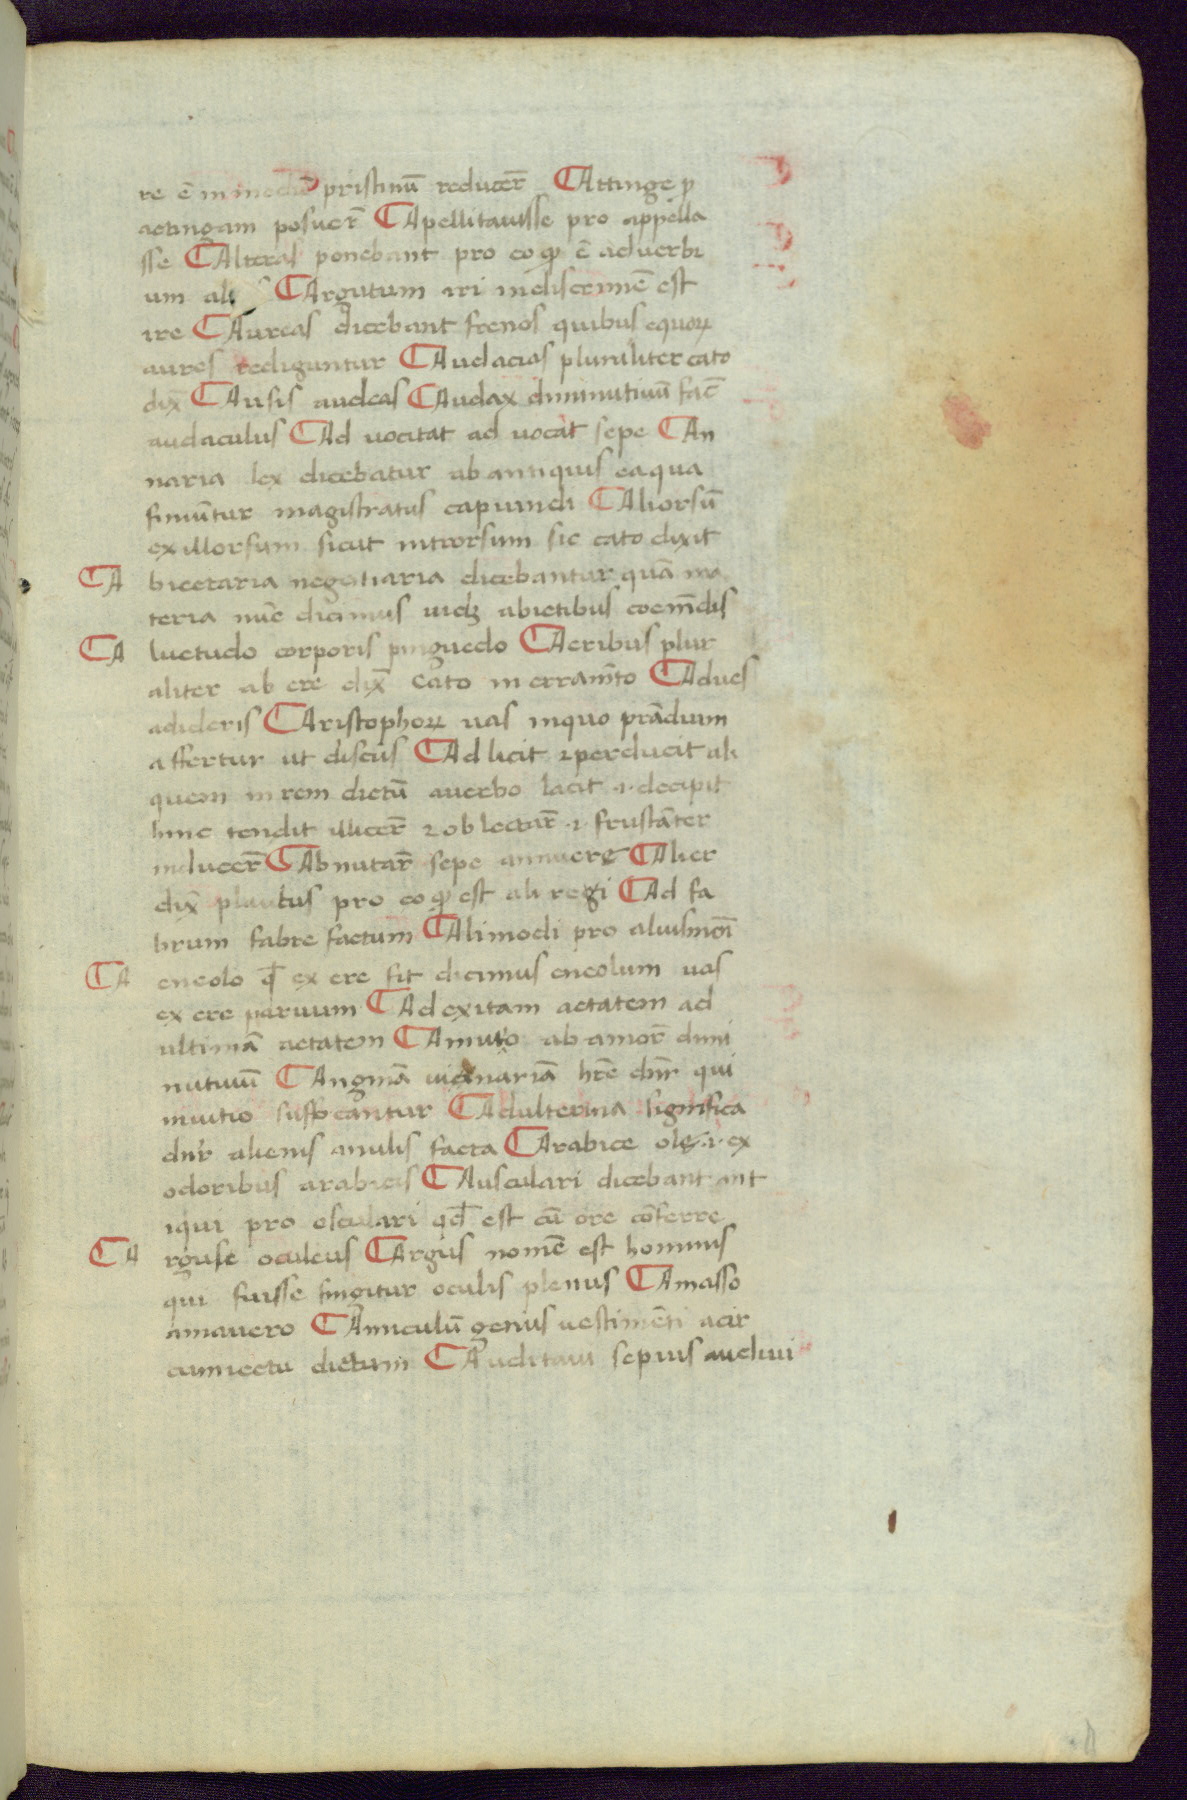 re ē in mediū pristinū reducer̄ Attinge p
actingam posuer̄ Apellitauisse pro appella
sse Alteras ponebant pro eo qp ē aduerbi
um ali Argutum iri indiscrimē est
ire Aureas dicebant frenos quibus equoꝝ
aures rediguntur Audacias pluraliter cato
dix̄ Ausis audeas Audax diminutiuū fac̄
audaculus Ad uocitat ad uocat sepe An
naria lex dicebatur ab antiquis ea qua
finiūtur magistratus capiundi Aliorsū
ex illorsum sicut introrsum sic cato dixit
A bicetaria negotiaria dicebantur quā ma
teria nūc dicimus uidꝫ abietibus coemēdis
A luetudo corporis pinguedo Aeribus plur
aliter ab ere dix̄ Cato in erramēto Adues
adideris Aristophoꝝ uas inquo prādium
affertur ut discus Ad licit ·i· perducit ali
quem in rem dictū auerbo lacit ·i· decipit
hinc tendit illicer̄ ⁊ ob lectar̄ ·i· frustāter
inducer̄ Abnutar̄ sepe annuere Alier
dix̄ plautus pro eo qp est ali regi Ad fa
brum fabre factum Alimodi pro aliusmōi
A eneolo qd̄ ex ere fit dicimus eneolum uas
ex ere paruum Ad exitam aetatem ad
ultimā aetatem Amuto ab amor̄ dimi
nutiuū Anginā uinariā hr̄e dn̄r qui
inuitio suffocantur Adulterina significa
dn̄r alienis anulis facta Arabice olę ·i· ex
odoribus arabicis Ausculari dicebant ant
iqui pro osculari qd̄ est cū ore cōferre
A rguse oculeus Argus nomē est hominis
qui fuisse fingitur oculis plenus Amasso
amauero Amiculū genus uestimēti acir
cumiectu dictum Auditaui sepius audiui